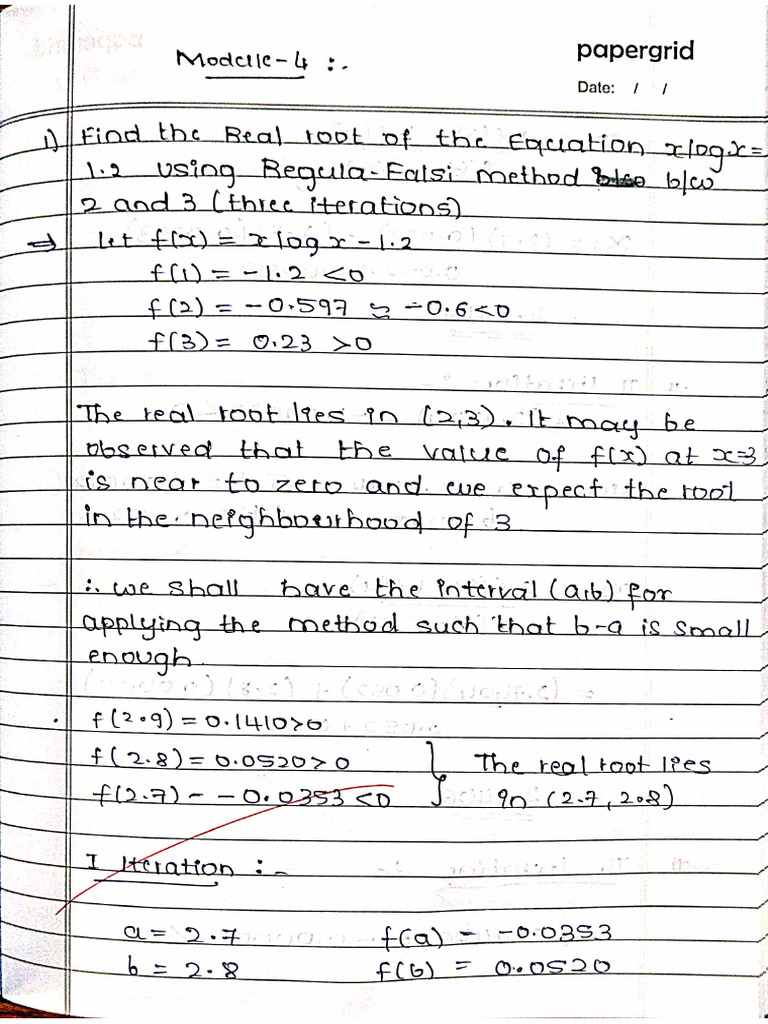 Module-4 :-
papergrid
Date: / /
1) Find the Real root of the Equation xlogx=
1.2 using Regula-Falsi method b/w
2 and 3 (three iterations)
⇒ let f(x) = xlogx-1.2
f(1) = -1.2 <0
f(2) = -0.597 ≃ -0.6<0
f(3) = 0.23 >0
The real root lies in (2,3). It may be
observed that the value of f(x) at x=3
is near to zero and we expect the root
in the neighbourhood of 3
∴ we shall have the interval (a,b) for
applying the method such that b-a is small
enough.
f(2.9) = 0.1410>0
f(2.8) = 0.0520>0 } The real root lies
f(2.7) - -0.0353<0 in (2.7, 2.8)
I Iteration :-
a = 2.7 f(a) - -0.0353
b = 2.8 f(b) = 0.0520